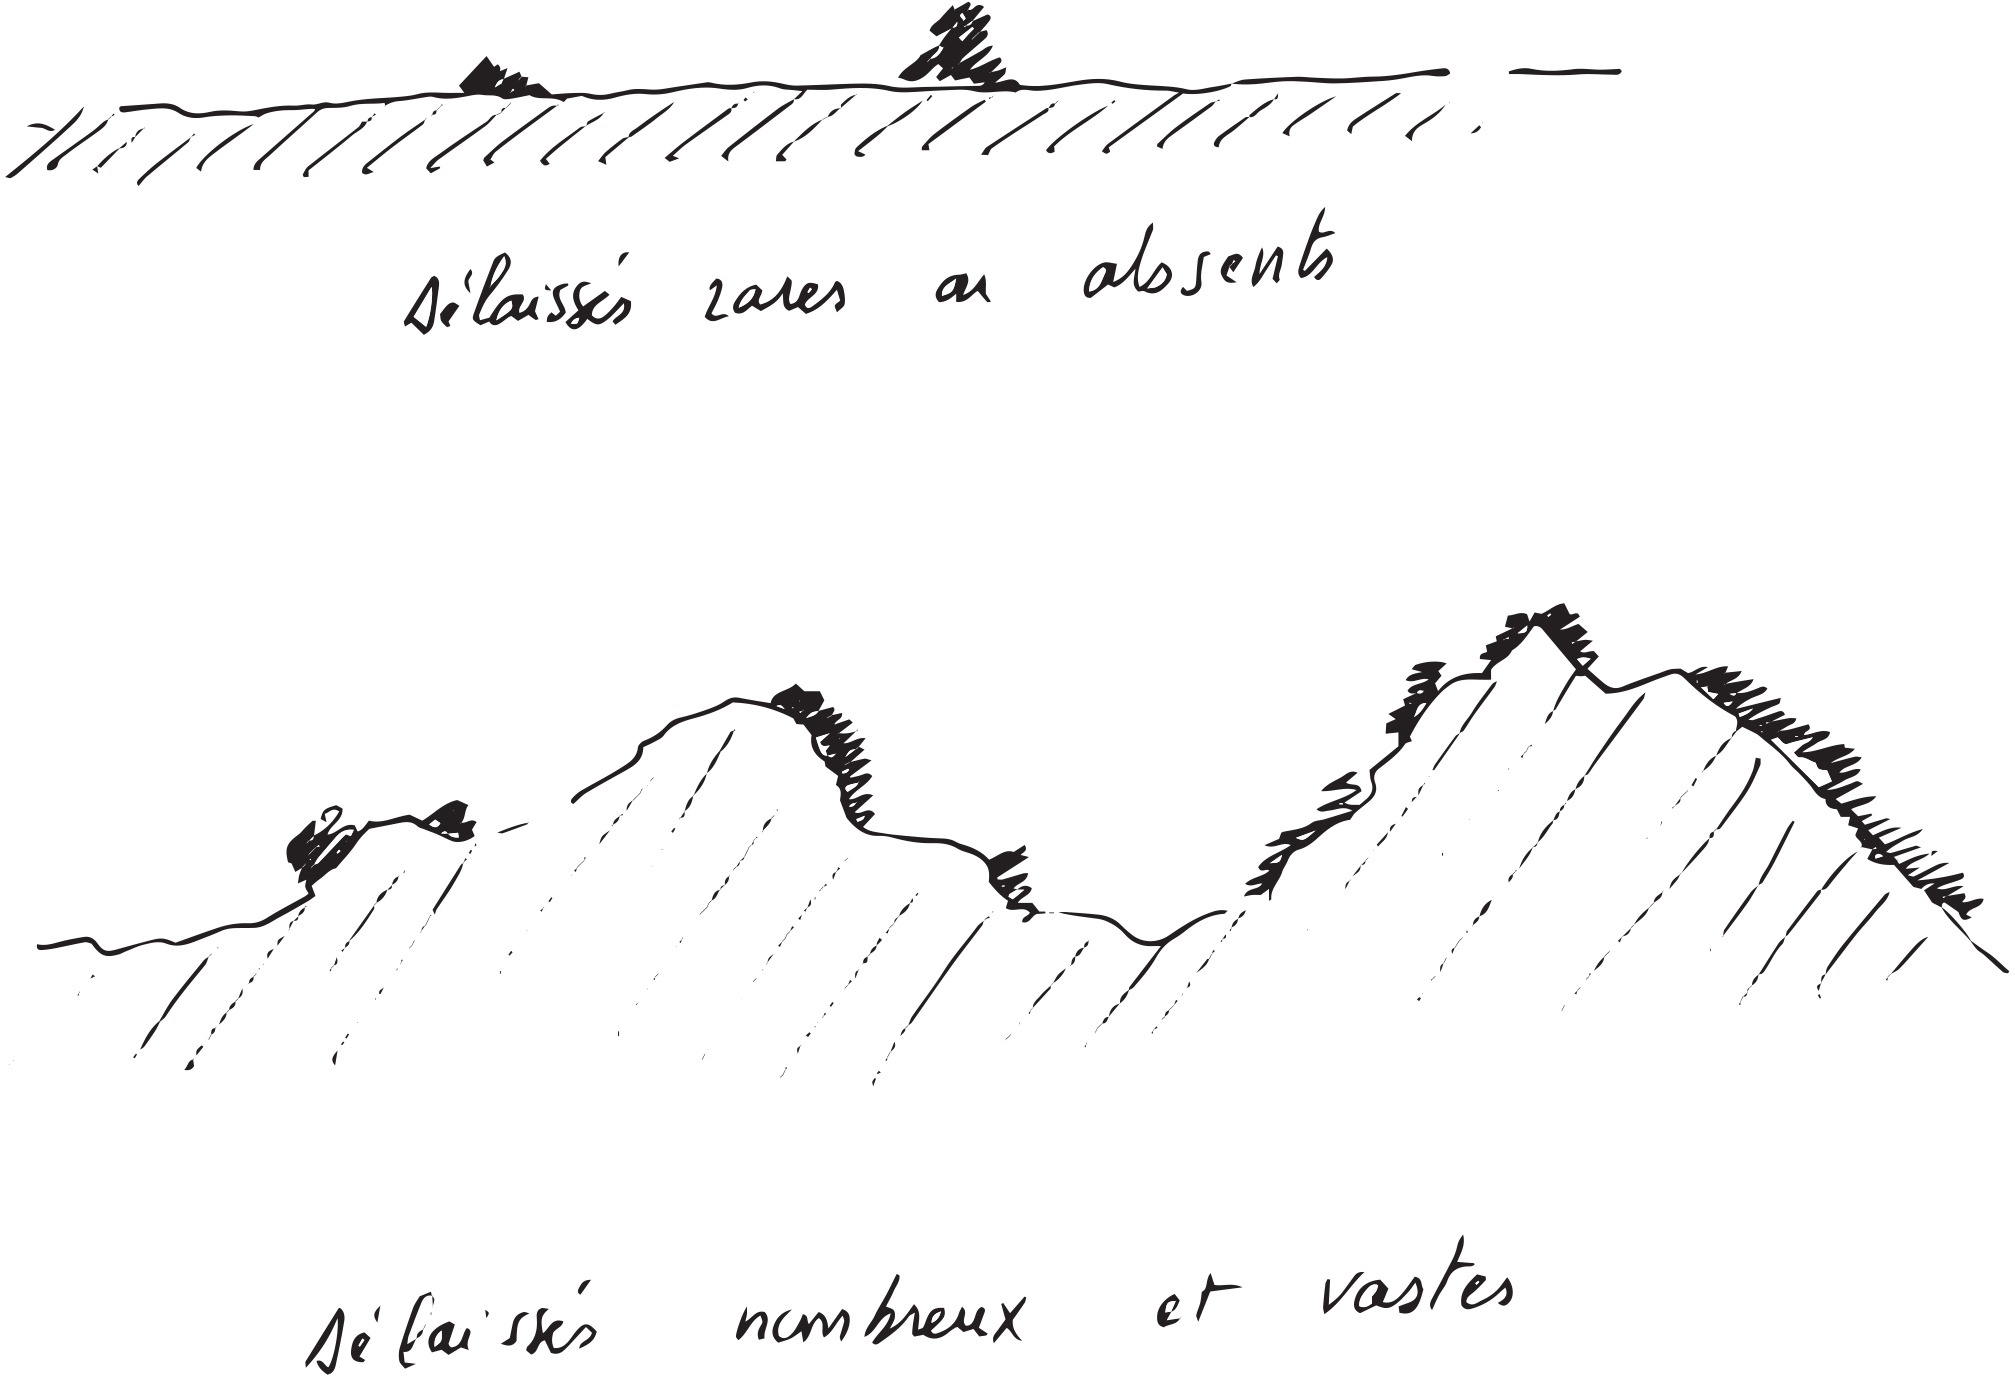 délaissés rares ou absents
délaissés nombreux et vastes